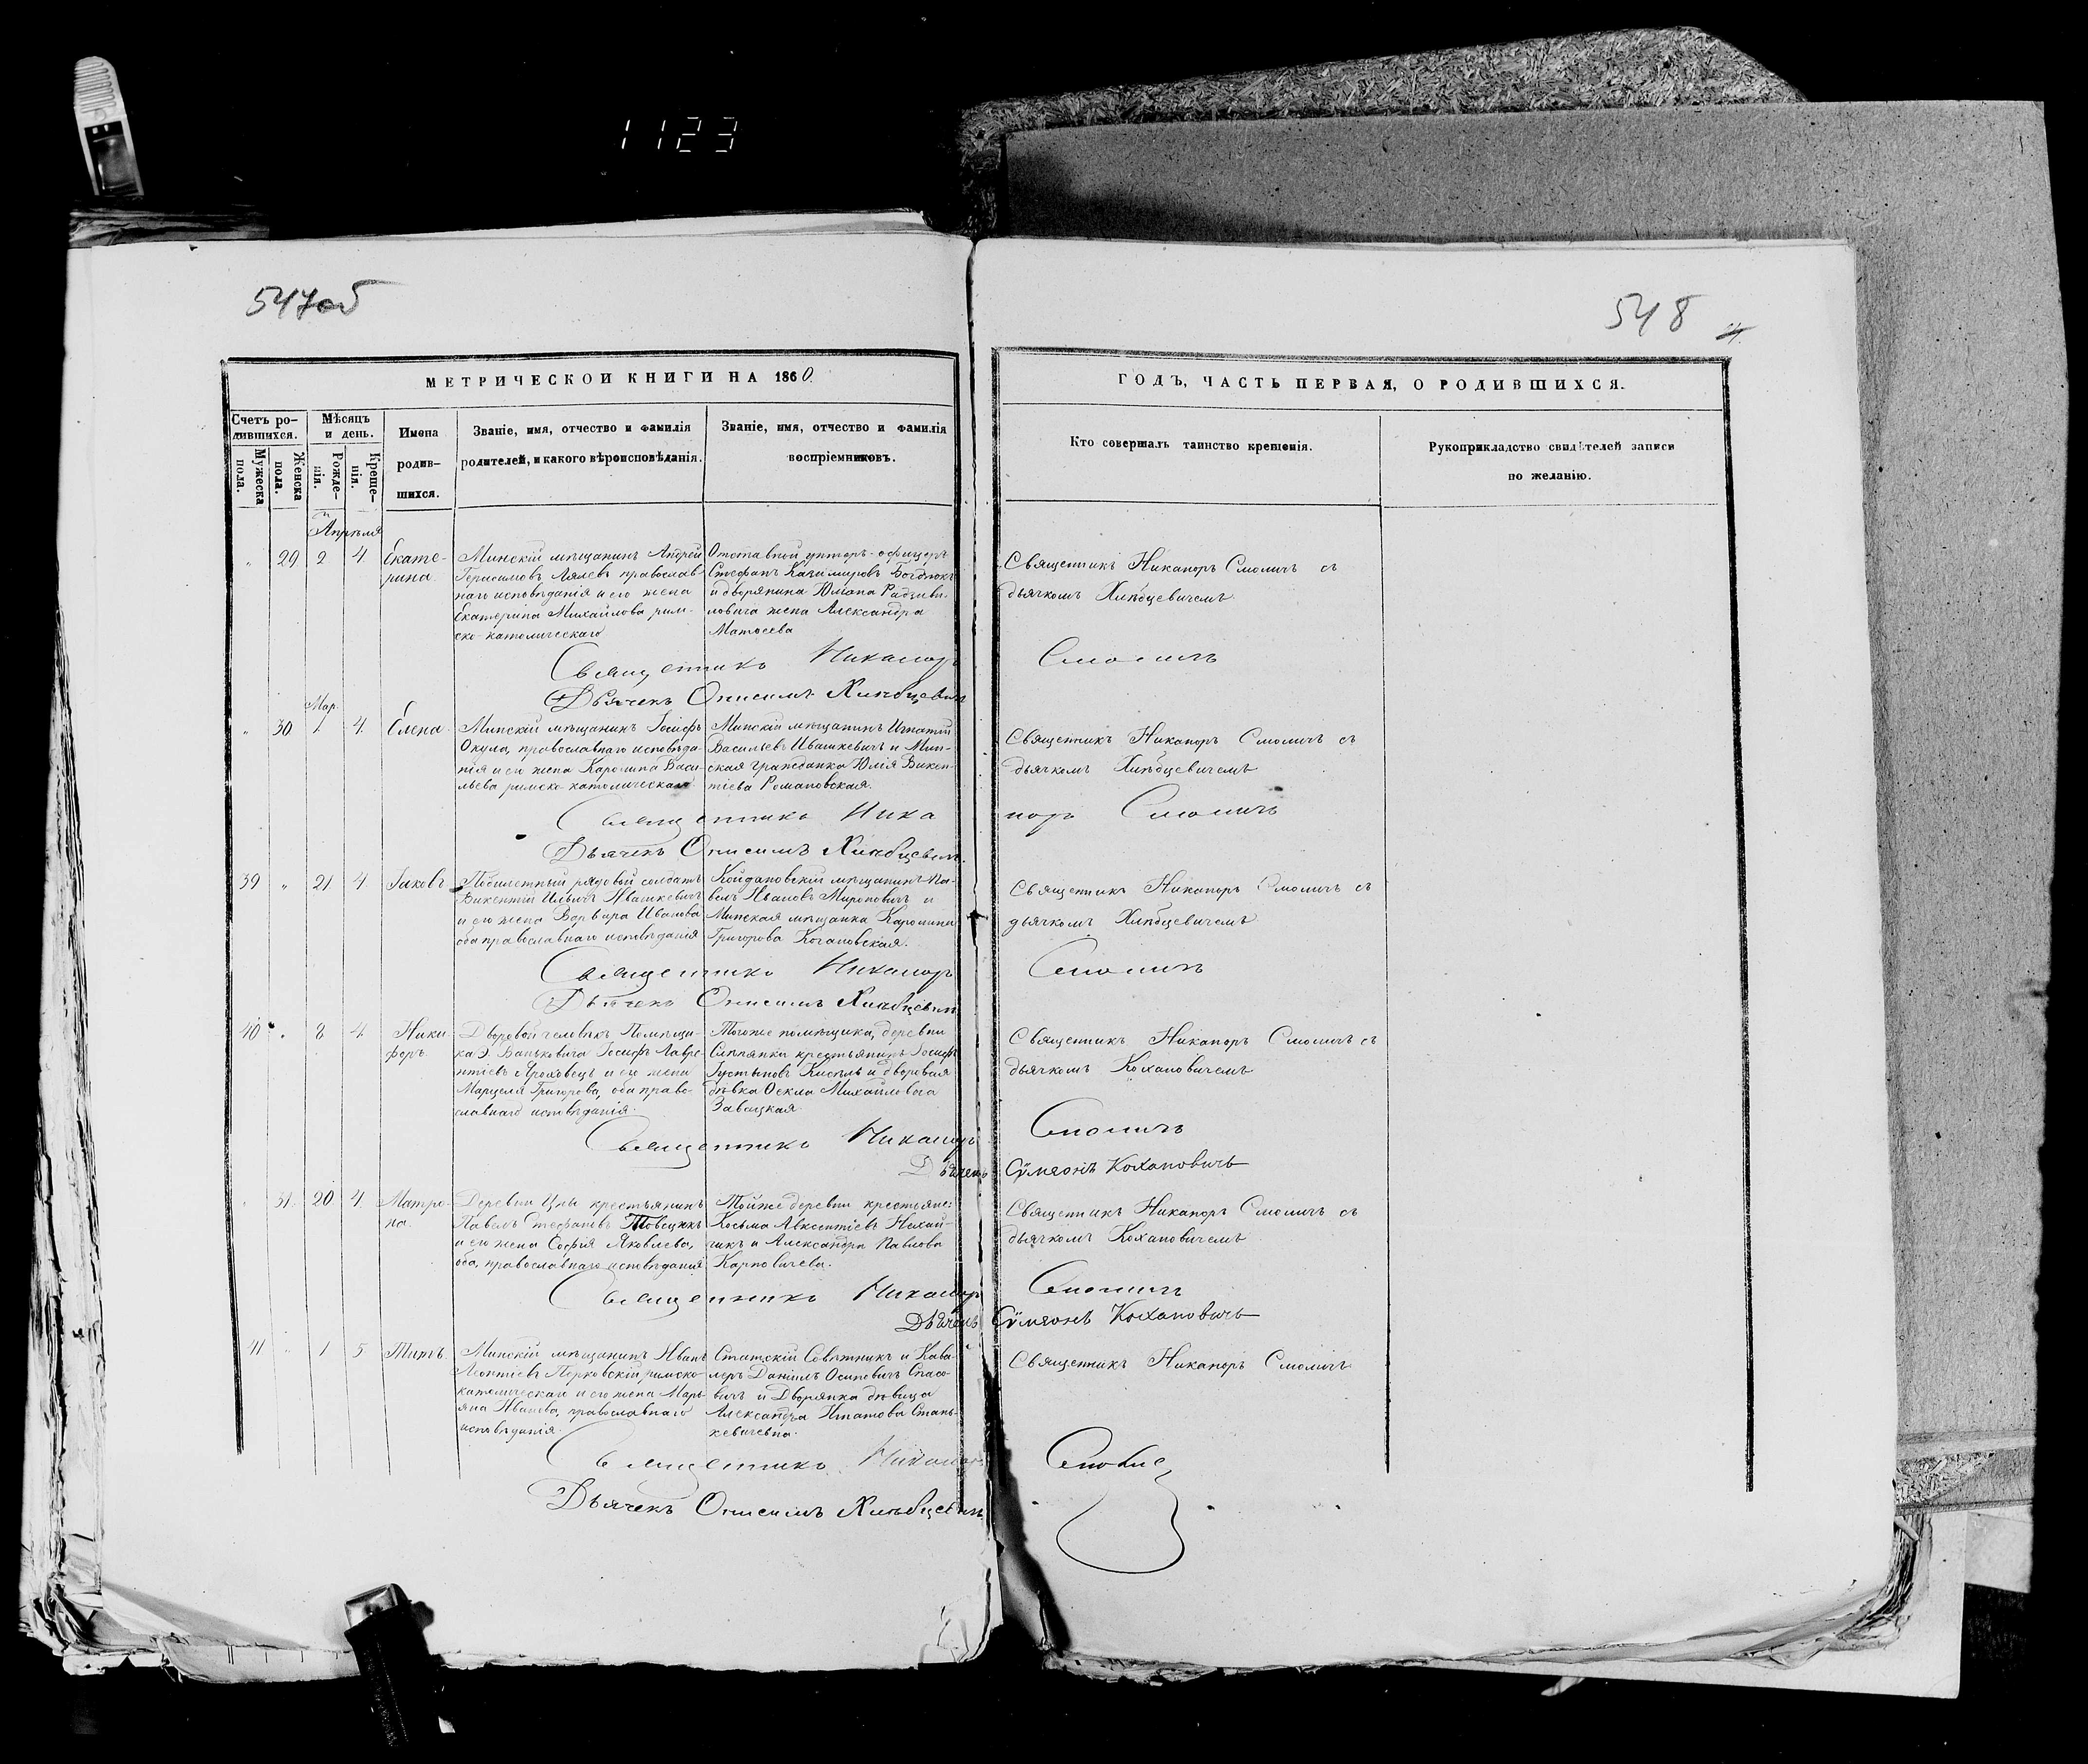 1123
547об
548
МЕТРИЧЕСКОЙ КНИГИ НА 1860.
ГОДЪ, ЧАСТЬ ПЕРВАЯ, О РОДИВШИХСЯ.
Счетъ ро-
дившихся.
Мужеска
пола.
Женска
пола.
Мѣсяцъ
и день.
Рожде-
нія.
Креще-
нія.
Имена
родив-
шихся.
Званіе, имя, отчество и фамилія
родителей, и какого вѣроисповѣданія.
Званіе, имя, отчество и фамилія
воспріемниковъ.
Кто совершалъ таинство крещенія.
Рукоприкладство свидѣтелей записи
по желанію.
Апрѣля
" 29 2 4. Екате-
рина.
Минскій мѣщанинъ Андрей
Герасимовъ Лялевъ православ-
наго исповѣданія и его жена
Екатерина Михайлова рим-
ско-католическаго
Отставной унтеръ-офицеръ
Стефанъ Казимировъ Богдюкъ
и дворянина Юліана Радзиви-
ловича жена Александра
Матѳеева
Священникъ Никаноръ Смоличъ съ
дьячкомъ Хлѣбцевичемъ.
Священникъ Никаноръ Смоличъ
Дьячекъ Онисимъ Хлѣбцевичъ
Мар.
" 30 1. 4. Елена
Минскій мѣщанинъ Іосифъ
Окула, православнаго исповѣда-
нія и его жена Каролина Васи-
льева римско-католическаго
Минскій мѣщанинъ Игнатій
Васильевъ Ивашкевичъ и Мин-
ская гражданка Юлія Викен-
тіева Романовская.
Священникъ Никаноръ Смоличъ съ
дьячкомъ Хлѣбцевичемъ
Священникъ Никаноръ Смоличъ
Дьячекъ Онисимъ Хлѣбцевичъ.
39 " 21 4. Іаковъ
Побилетный рядовой солдатъ
Викентій Ильичъ Ивашкевичъ
и его жена Варвара Иванова
оба православнаго исповѣданія
Койдановскій мѣщанинъ Па-
велъ Ивановъ Мироновичъ и
Минская мѣщанка Каролина
Григорова Когановская.
Священникъ Никаноръ Смоличъ съ
дьячкомъ Хлѣбцевичемъ
Священникъ Никаноръ Смоличъ
Дьячекъ Онисимъ Хлѣбцевичъ
40 " 8 4. Ники-
форъ.
Дворовой человѣкъ Помѣщи-
ка Э. Ваньковича Іосифъ Лавре-
нтіевъ Ярохоvецъ и его жена
Марцеля Григорова, оба право-
славнаго исповѣданія.
Тогоже помѣщика, деревни
Слѣпянки крестьянинъ Іосифъ
Іустиновъ Кисѣль и дворовая
дѣвка Ѳекла Михайлова
Завацкая
Священникъ Никаноръ Смоличъ съ
дьячкомъ Кохановичемъ
Священникъ Никаноръ Смоличъ
Дьячекъ Сѵмеонъ Кохановичъ
" 31. 20 4. Матро-
на.
Деревни Цны крестьянинъ
Павелъ Стефановъ Товсцикъ
и его жена Софія Яковлева,
оба, православнаго исповѣданія
Тойже деревни крестьяне:
Косьма Авксентіевъ Нехай-
чикъ и Александра Павлова
Карповичева.
Священникъ Никаноръ Смоличъ съ
дьячкомъ Кохановичемъ
Священникъ Никаноръ Смоличъ
Дьячекъ Сѵмеонъ Кохановичъ
41 " 1 5
Минскій мѣщанинъ Иванъ
Леонтіевъ Перковскій, римско-
католическаго и его жена Марь-
яна Иванова, православнаго
исповѣданія.
Статскій Совѣтникъ и Кава-
леръ Даніилъ Осиповичъ Спасо-
вичъ и Дворянка дѣвица
Александра Игнатова Стань-
кевичевна.
Священникъ Никаноръ Смоличъ
Священникъ Никаноръ Смоличъ
Дьячекъ Онисимъ Хлѣбцевичъ